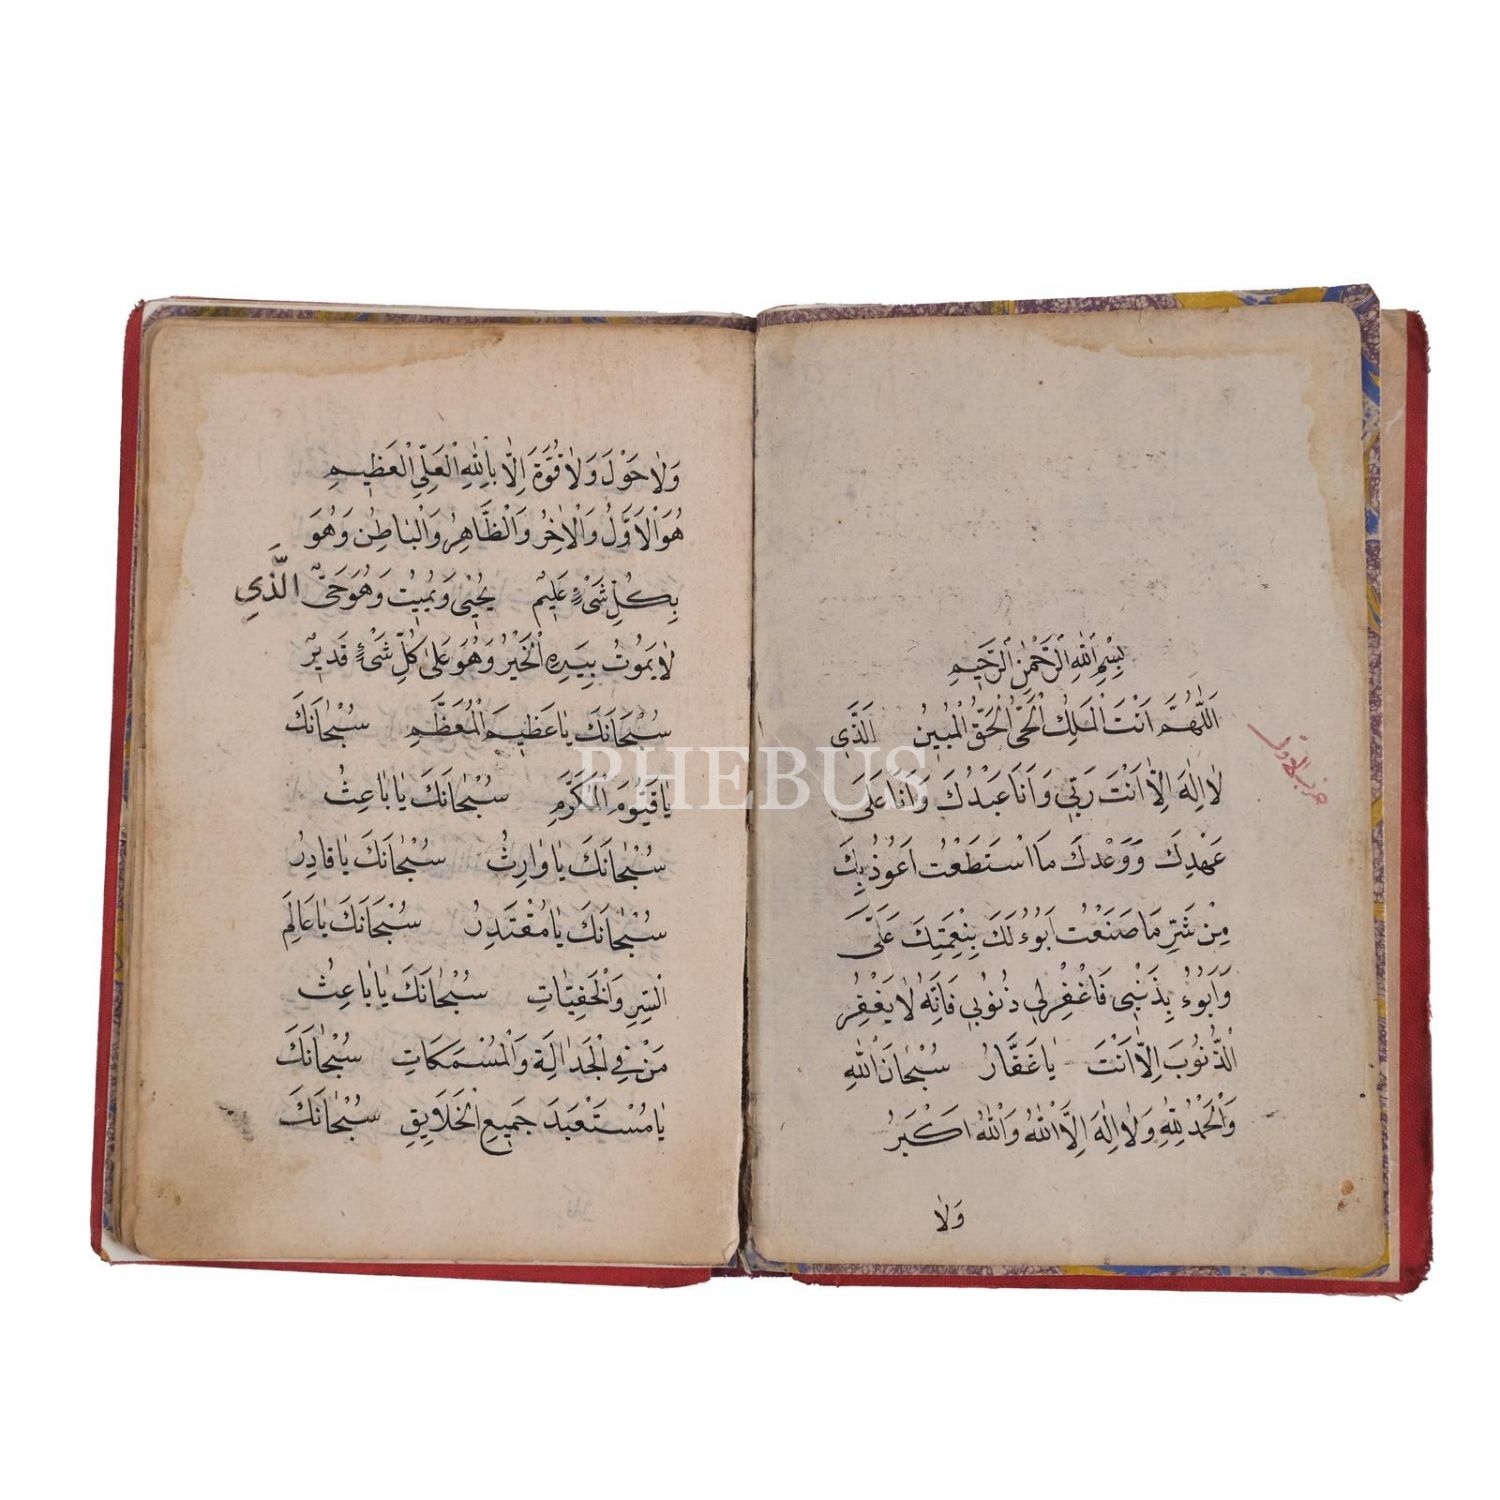 بِسْمِ اللهِ الرَّحْمٰنِ الرَّحِيمِ
اَللّٰهُمَّ اَنْتَ الْمَلِكُ الْحَىُّ الْحَقُّ الْمُبِينُ الَّذَى
لَا اِلٰهَ اِلَّا اَنْتَ رَبِّى وَاَنَا عَبْدُكَ وَاَنَا عَلَى
عَهْدِكَ وَوَعْدِكَ مَا اسْتَطَعْتُ اَعُوذُ بِكَ
مِنْ شَرِّ مَا صَنَعْتُ اَبُوءُ لَكَ بِنِعْمَتِكَ عَلَىَّ
وَاَبُوءُ بِذَنْبِى فَاغْفِرْلِى ذُنُوبِى فَاِنَّهُ لَا يَغْفِرُ
الذُّنُوبَ اِلَّا اَنْتَ يَا غَفَّارُ سُبْحَانَ اللهِ
وَالْحَمْدُ لِلّٰهِ وَلَا اِلٰهَ اِلَّا اللهُ وَاللهُ اَكْبَرُ
وَلَا
حزب الاول
وَلَا حَوْلَ وَلَا قُوَّةَ اِلَّا بِاللهِ الْعَلِىِّ الْعَظِيمِ
هُوَ الْاَوَّلُ وَالْاٰخِرُ وَالْظَّاهِرُ وَالْبَاطِنُ وَهُوَ
بِكُلِّ شَىْءٍ عَلِيمٌ يُحْيِى وَيُمِيتُ وَهُوَ حَىٌّ الَّذَي
لَا يَمُوتُ بِيَدِهِ الْخَيْرُ وَهُوَ عَلٰى كُلِّ شَىْءٍ قَدِيرٌ
سُبْحَانَكَ يَا عَظِيمَ الْمُعَظَّمِ سُبْحَانَكَ
يَا قَيُّومَ الْمُكَرَّمِ سُبْحَانَكَ يَا بَاعِثُ
سُبْحَانَكَ يَا وَارِثُ سُبْحَانَكَ يَا قَادِرُ
سُبْحَانَكَ يَا مُقْتَدِرُ سُبْحَانَكَ يَا عَالِمَ
السِّرِ وَالْخَفِيَّاتِ سُبْحَانَكَ يَا بَاعِثُ
مَنْ فِى وَالْمُسْمَكَاتِ سُبْحَانَكَ
يَا مُسْتَعْبَدَ جَمِيعِ الْخَلَايِقِ سُبْحَانَكَ
PHEBUS